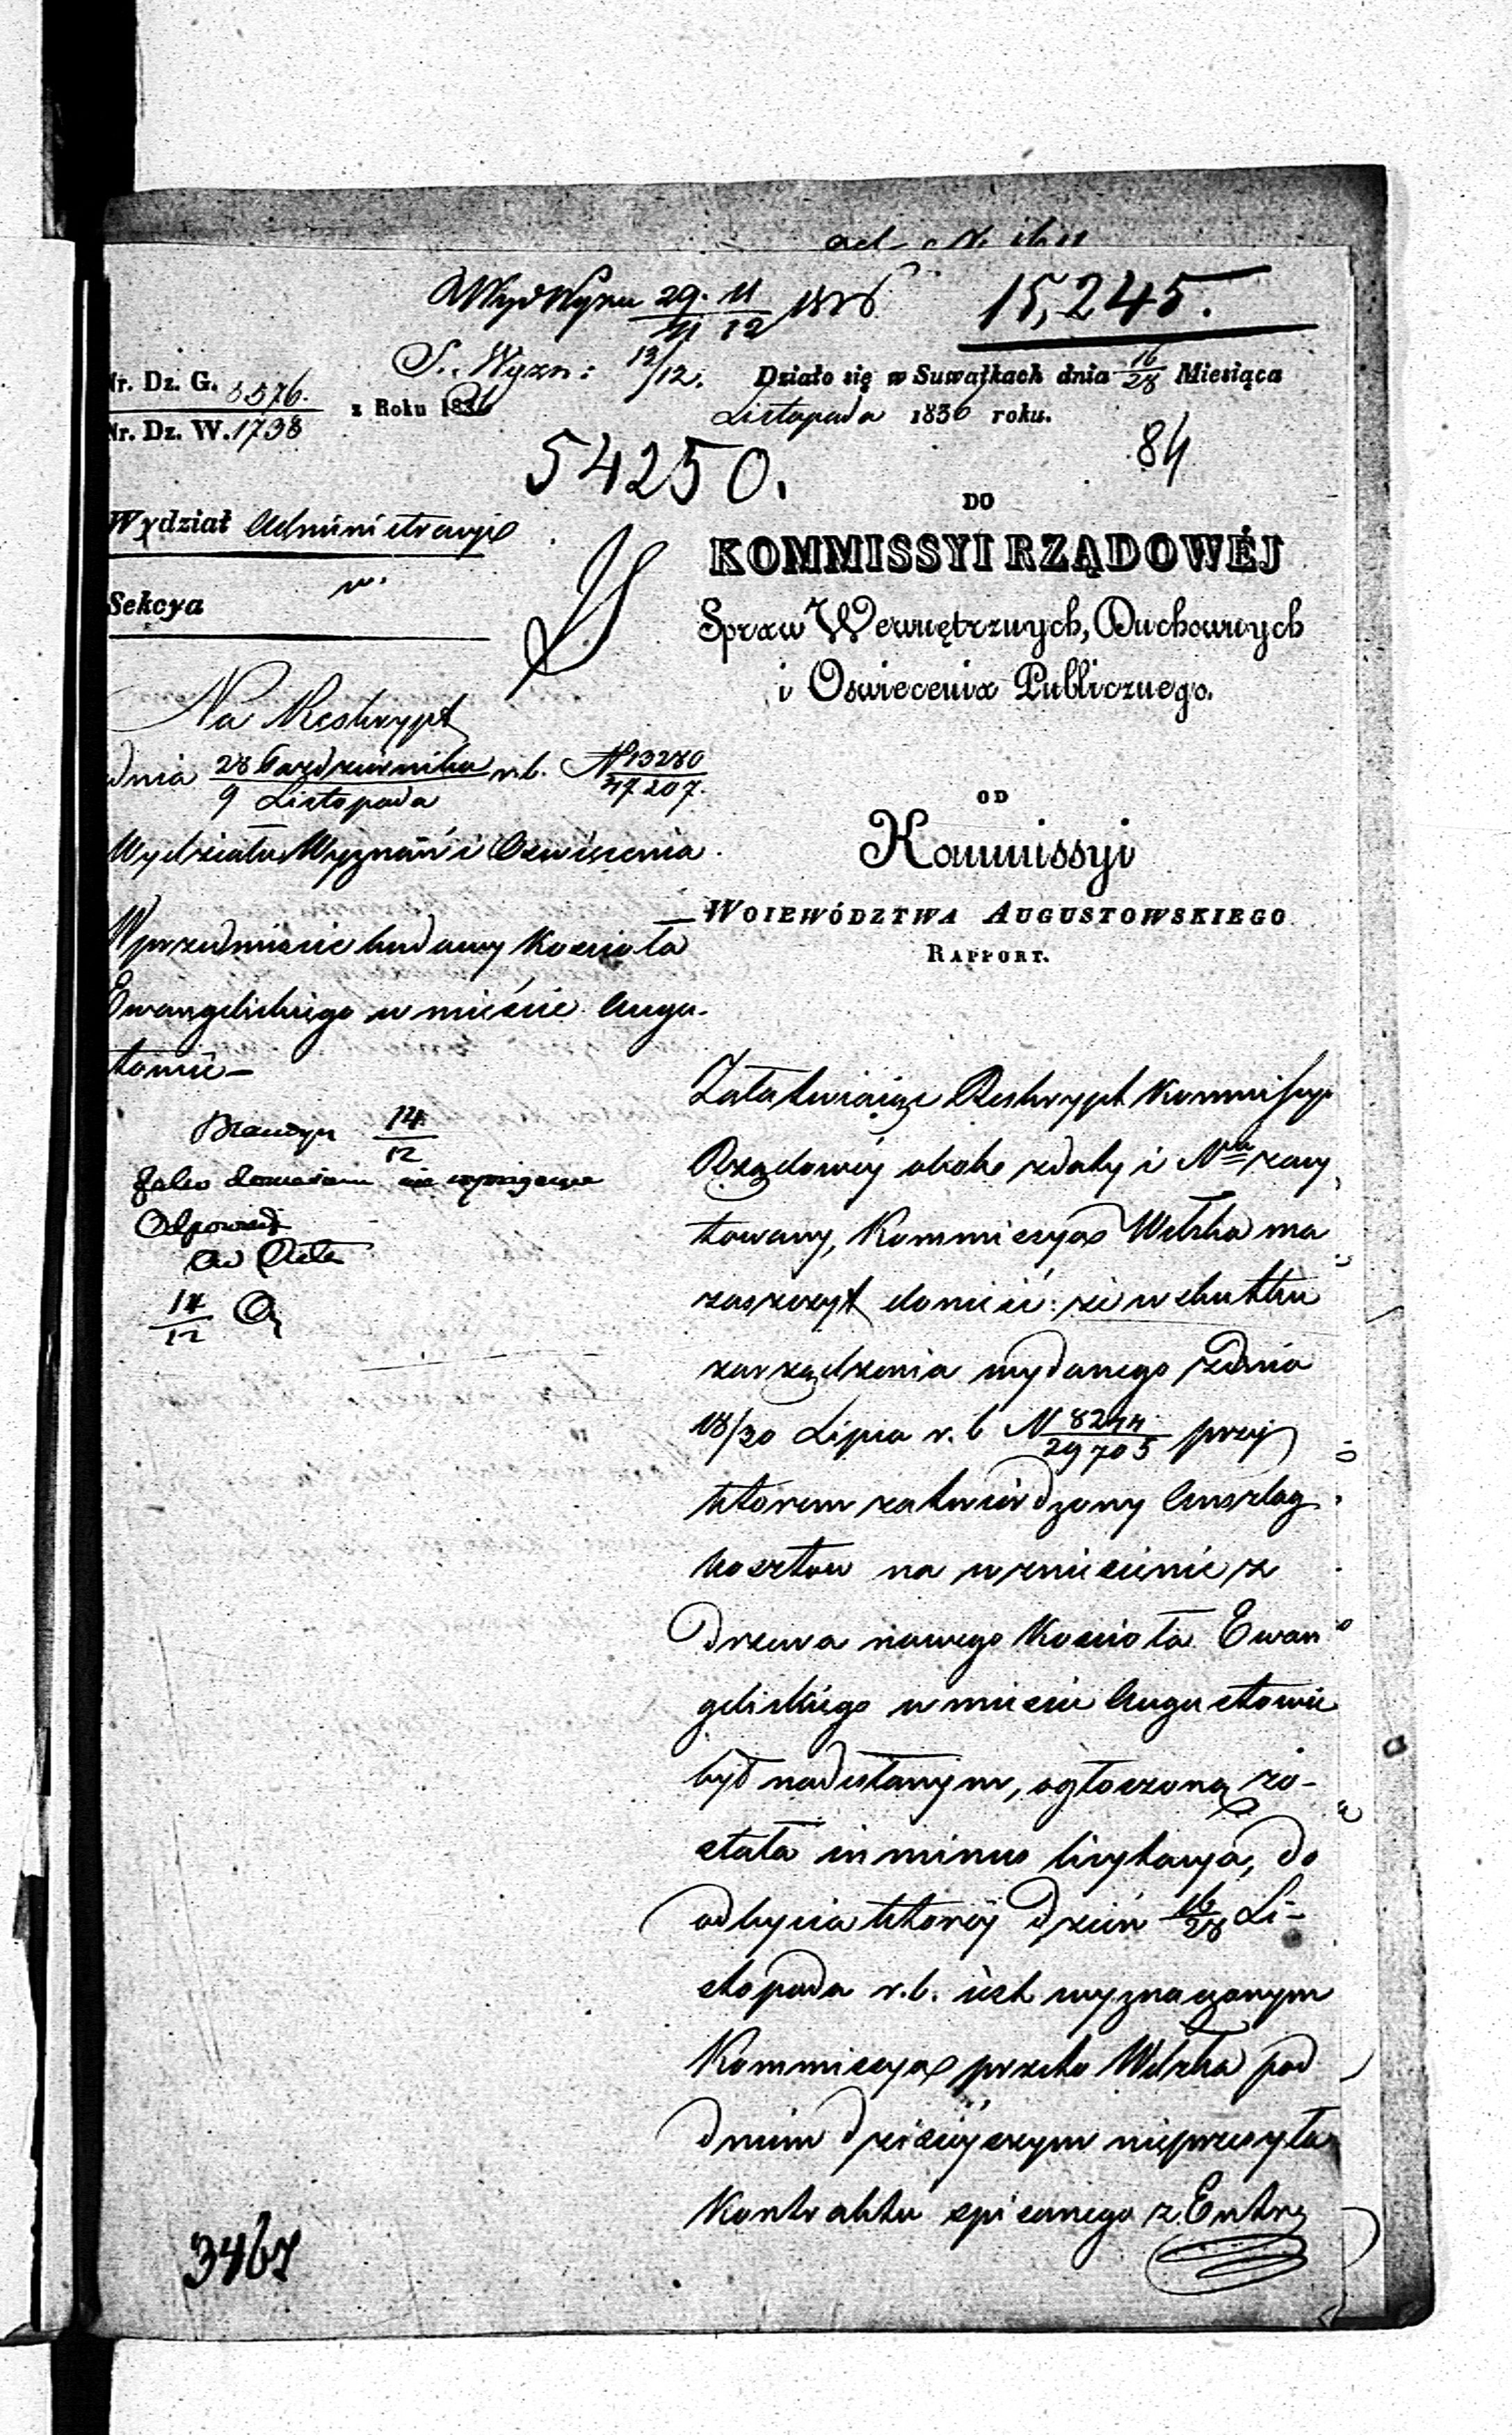 ad N.
15,245.
Wyd Wyzn 29. 11 / 11 12 1836
S. Wyzn: 13/12.
Nr. Dz. G. 5576.
Nr. Dz. W. 1738
z Roku 1836
Działo się w Suwałkach dnia 16/28 Miesiąca
Listopada 1836 roku.
84
54250.
Wydział Administracyi
Sekcya
DO
KOMMISSYI RZĄDOWÉJ
Spraw Wewnętrznych, Duchownych
i Oswiecenia Publicznego.
Na Reskrypt
dnia 28 Października / 9 Listopada r.b. N 13280/47207.
Wydziału Wyznań i Oświecenia.
W przedmiocie budowy Kościoła
Ewangelickiego w mieście Augu-
stowie –
14/12
Odpowiedź
ad Acta
14/12
OD
Kommissyi
WOIEWÓDZTWA AUGUSTOWSKIEGO
RAPPORT.
Załatwiaiąc Reskrypt Kommissyi
Rządowéy obok z daty i Nru zacy
towany, Kommissya Wdzka ma
zaszczyt donieść: że w skutku
zarządzenia wydanego z dnia
18/30 Lipca r.b N 8244/29705 przy
którem zatwierdzony Anszlag
kosztów na wzniesienie z
drzewa nowego Kościoła Ewan
gelickiego w mieście Augustowie
był nadesłanym, ogłoszoną zo-
stała in minus licytacya, do
odbycia któréy dzień 16/28 Li-
stopada r.b. iest wyznaczonym
Kommissya przeto Wdzka pod
dniem dzisieyszym nieprzesyła
Kontraktu spisanego z Entre
3467